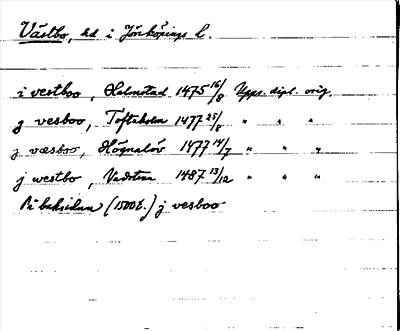 Västbo, hd i Jönköpings l.
i vestboo, Halmstad 1475 16/8 Upps. dipl. orig.
j vesboo, Toftaholm 1477 25/8 " " "
j væsboo, Högnalöv 1477 14/7 " " "
j westbo, Vadstena 1487 13/12 " " "
På baksidan (1500t.) j vesboo